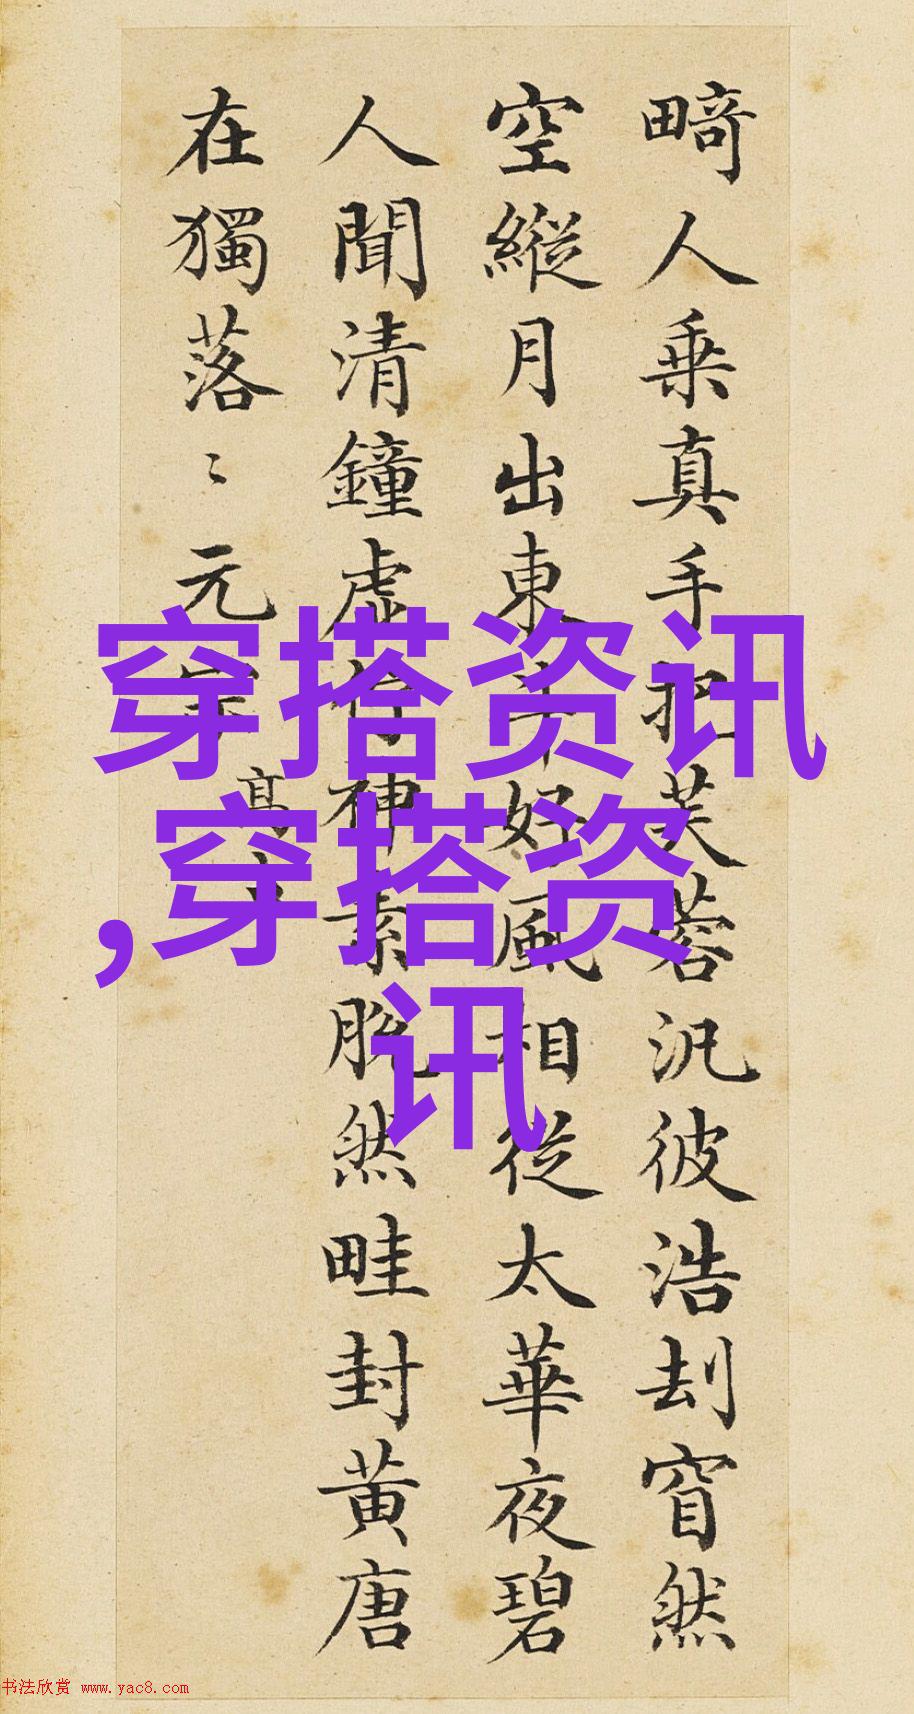 畸人乗真手把芙蓉汎彼浩刦窅然
空縱月出東斗好風相從太華夜碧
人聞清鐘虚佇神素脫然畦封黄唐
在獨落〻元宗
高
穿搭资讯
,穿搭资
讯
书法欣赏 www.yac8.com